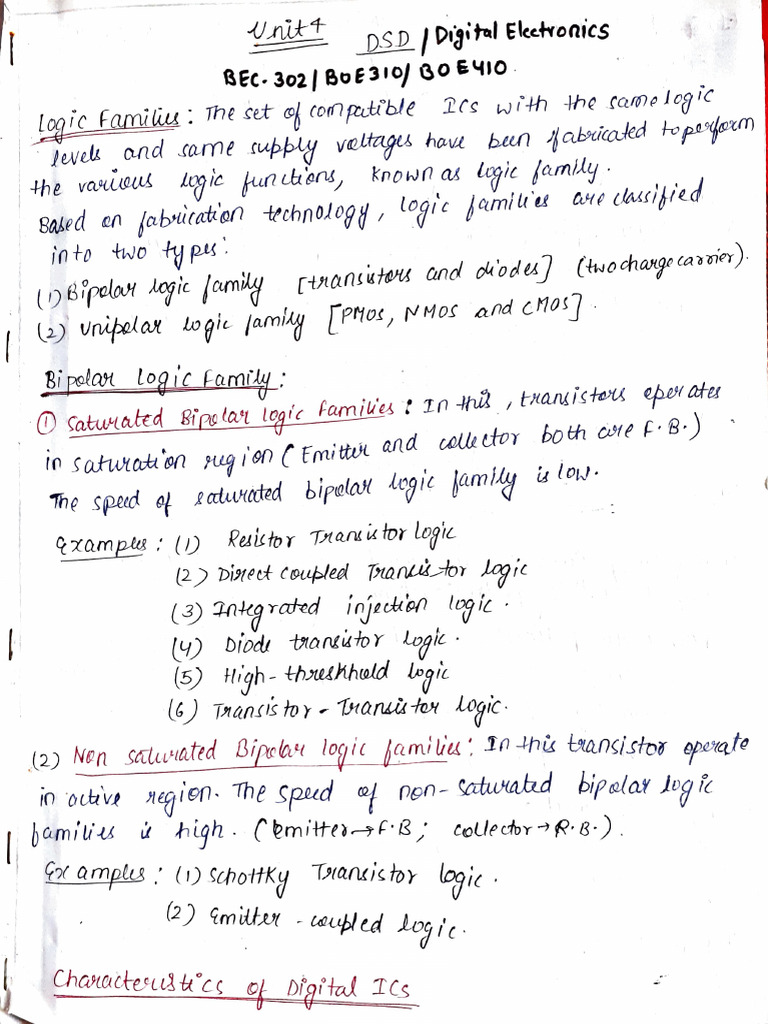 Unit 4 DSD / Digital Electronics
BEC-302 / BOE310 / BOE410
Logic Families : The set of compatible ICs with the same logic
levels and same supply voltages have been fabricated to perform
the various logic functions, known as logic family.
Based on fabrication technology, logic families are classified
into two types:
(1) Bipolar logic family [transistors and diodes] (two charge carrier).
(2) Unipolar logic family [PMOS, NMOS and CMOS].
Bipolar Logic Family :
① Saturated Bipolar logic families : In this, transistors operates
in saturation region (Emitter and collector both are F.B.)
The speed of saturated bipolar logic family is low.
Examples : (1) Resistor Transistor logic
(2) Direct coupled Transistor logic
(3) Integrated injection logic.
(4) Diode transistor logic.
(5) High-threshhold logic
(6) Transistor-Transistor logic.
(2) Non saturated Bipolar logic families : In this transistor operate
in active region. The speed of non-saturated bipolar logic
families is high. (Emitter→F.B; collector→R.B.).
Examples : (1) Schottky Transistor logic.
(2) Emitter-coupled logic.
Characteristics of Digital ICs